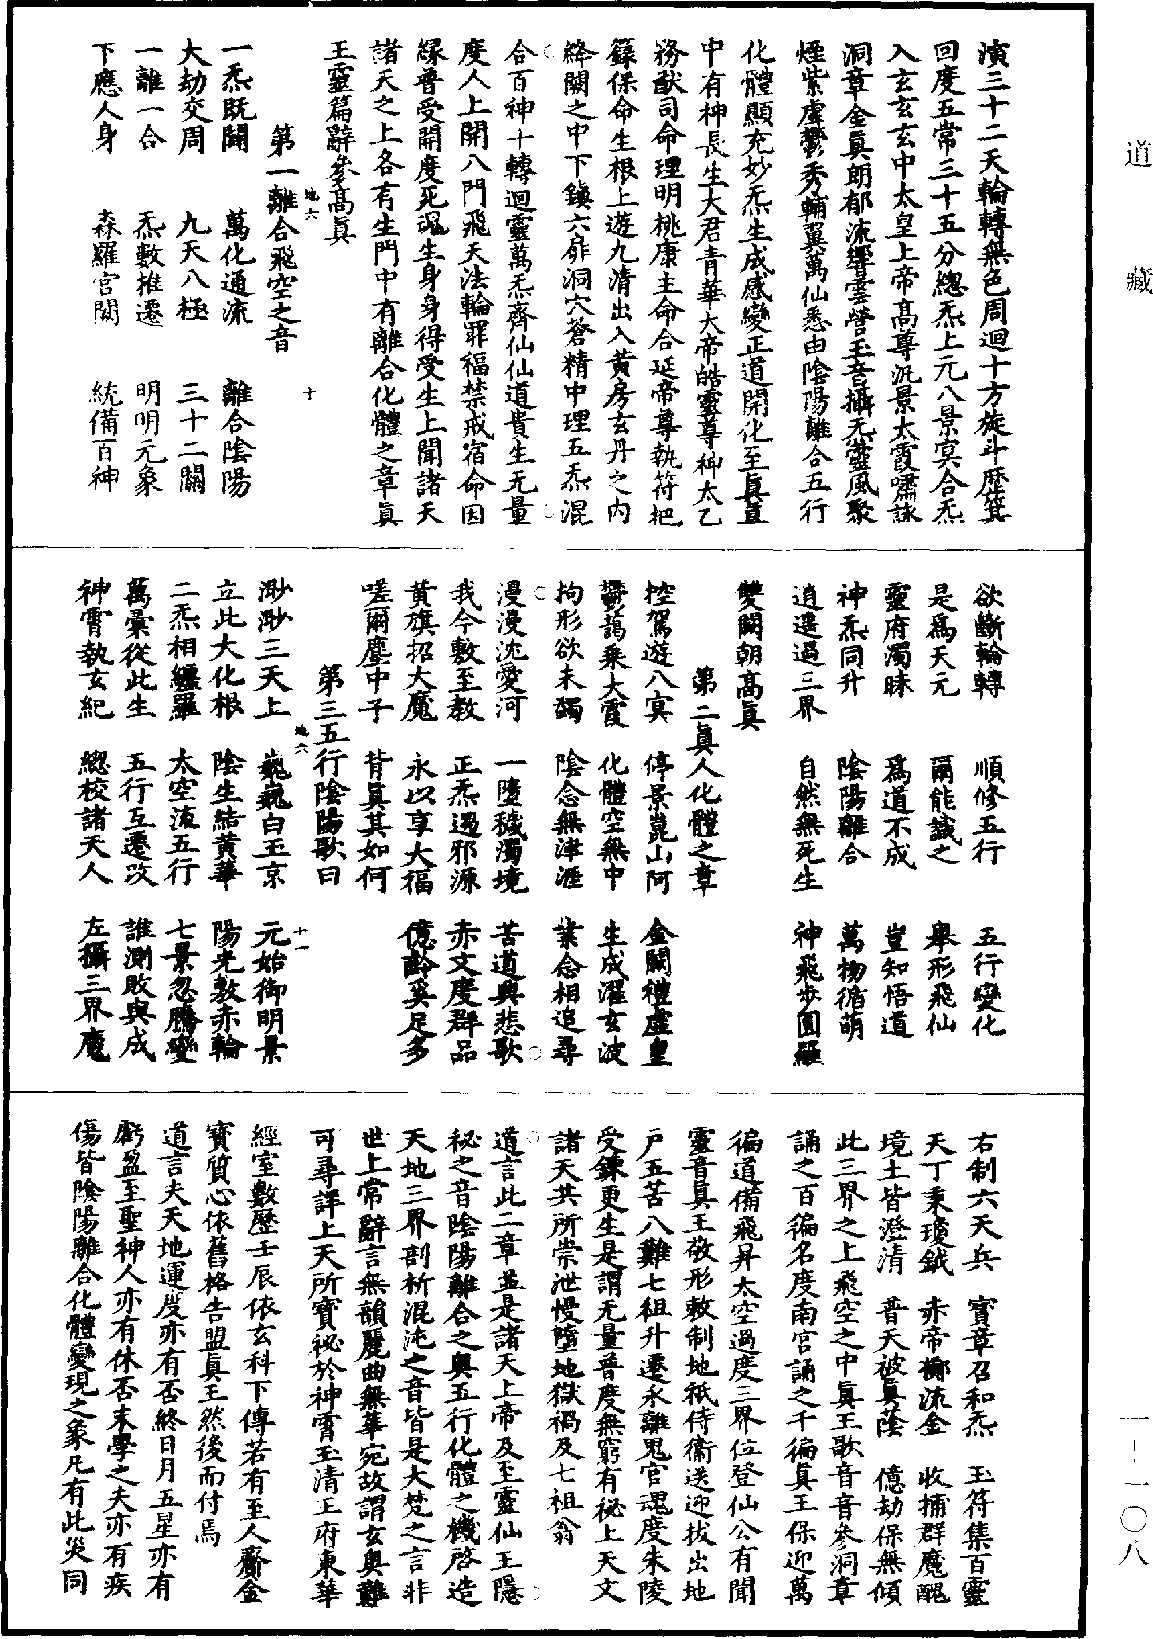 道藏
一—一〇八
濱三十二天輪轉無色周迴十方旋斗歷箕
回度五常三十五分總炁上元八景冥合炁
入玄玄玄中太皇上帝高尊汎景太霞嘯詠
洞章金真朗郁流響雲營玉音攝炁靈風聚
煙紫虛鬱秀輔翼萬仙悉由陰陽離合五行
化體顯充妙炁生成感變正道開化至真真
中有神長生大君青華大帝皓靈尊神太乙
務猷司命理明桃康主命合延帝尊執符把
籙保命生根上遊九清出入黃房玄丹之內
絳闕之中下鎮六府洞穴蒼精中理五炁混
合百神十轉迴靈萬炁齊仙仙道貴生无量
度人上開八門飛天法輪罪福禁戒宿命因
緣普受開度死魂生身身得受生上聞諸天
諸天之上各有生門中有離合化體之章真
王靈篇辭參高真
第一離合飛空之音
地六 十
一炁既闢 萬化通流 離合陰陽
大劫交周 九天八極 三十二關
一離一合 炁數推遷 明明元象
下應人身 森羅宮闕 統備百神
欲斷輪轉 順修五行 五行變化
是為天元 爾能識之 舉形飛仙
靈府濁昧 為道不成 豈知悟道
神炁同升 陰陽離合 萬物循萌
逍遙過三界 自然無死生 神飛步圓羅
雙闕朝高真
第二真人化體之章
控駕遊八寘 停景崑山阿 金闕禮虛皇
鬱藹乘大霞 化體空無中 生成濯玄波
拘形欲未蠲 陰念無津涯 業念相追尋
漫漫沈愛河 一墮穢濁境 苦道興悲歌
我今敷至教 正炁遏邪源 赤文慶群品
黃旗招大魔 永以享大福 億齡奚足多
嗟爾塵中子 背真其如何
第三五行陰陽歌曰
地六 十一
渺渺三天上 巍巍白玉京 元始御明景
立此大化根 陰生結黃華 陽光敷赤輪
二炁相纏羅 太空流五行 七景忽騰變
萬彙從此生 五行互遷改 誰測敗與成
神霄執玄紀 總校諸天人 左攝三界魔
右制六天兵 寶章召和炁 玉符集百靈
天丁秉瓊鉞 赤帝擲流金 收捕群魔醜
境土皆澄清 普天被真蔭 億劫保無傾
此三界之上飛空之中真王歌音音參洞章
誦之百徧名度南宮誦之千徧真王保迎萬
徧道備飛昇太空過度三界位登仙公有聞
靈音真王敬形敕制地祇侍衞送迎拔出地
戶五苦八難七祖升遷永離鬼官魂度朱陵
受鍊更生是謂无量普度無窮有祕上天文
諸天共所崇泄慢墮地獄禍及七祖翁
道言此二章並是諸天上帝及至靈仙王隱
秘之音陰陽離合之奧五行化體之機啓造
天地三界剖析混沌之音皆是大梵之言非
世上常辭言無韻麗曲無華宛故謂玄奧難
可尋詳上天所寶祕於神霄玉清王府東華
經室數歷壬辰依玄科下傳若有至人齎金
寶質心依舊格告盟真王然後而付焉
道言夫天地運度亦有否終日月五星亦有
虧盈至聖神人亦有休否末學之夫亦有疾
傷皆陰陽離合化體變現之象凡有此災同